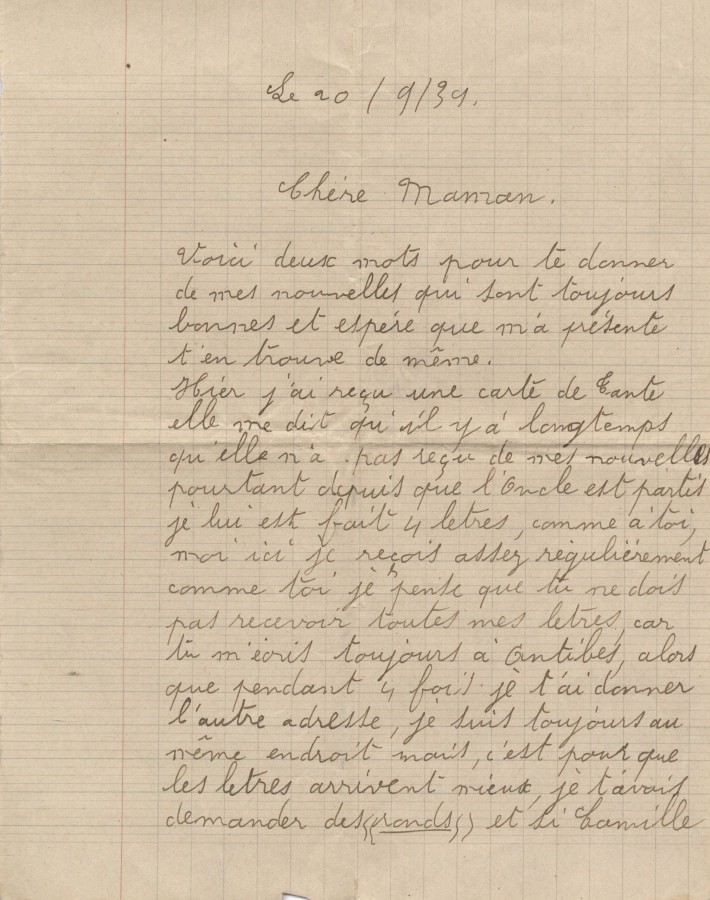 Le 20/9/39.
Chère Maman.
Voici deux mots pour te donner
de mes nouvelles qui sont toujours
bonnes et espère que m'a présente
t'en trouve de même.
Hier j'ai reçu une carte de Tante
elle me dit qu'il y à longtemps
qu'elle n'a pas reçu de mes nouvelles
pourtant depuis que l'Oncle est partis
je lui est fait 4 letres, comme à toi,
moi ici je reçois assez régulièrement
comme toi je pense que tu ne dois
pas recevoir toutes mes letres, car
tu m'écris toujours à Antibes, alors
que pendant 4 fois je t'ai donner
l'autre adresse, je suis toujours au
même endroit mais, c'est pour que
les letres arrivent mieux, je t'avais
demander des ((ronds)) et si Camille